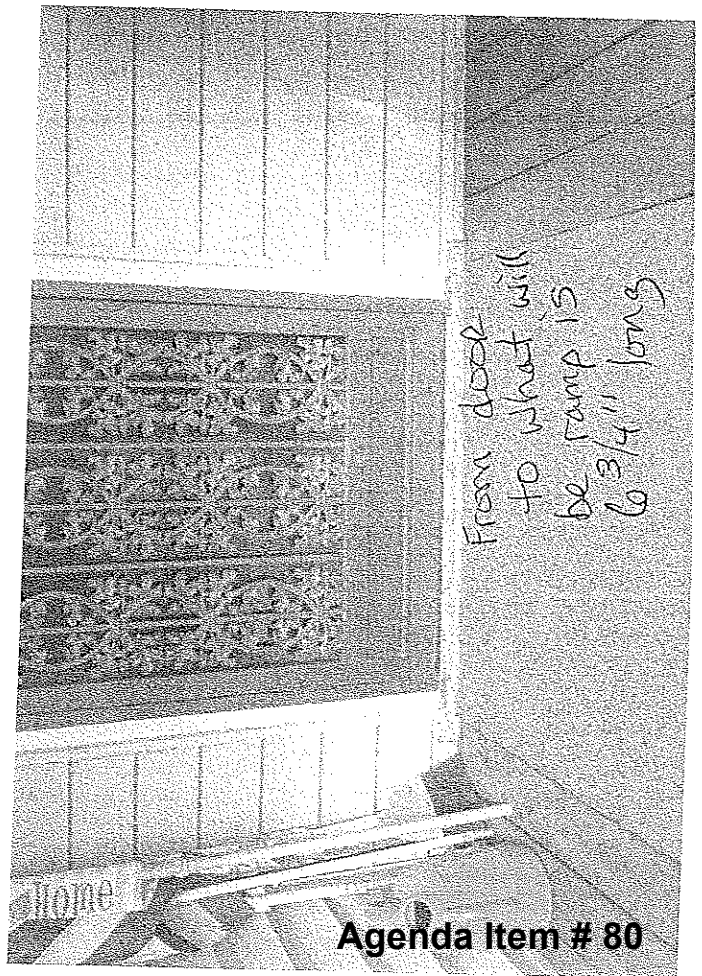 From door
to what will
be ramp is
6 3/4" long
Home
Agenda Item # 80